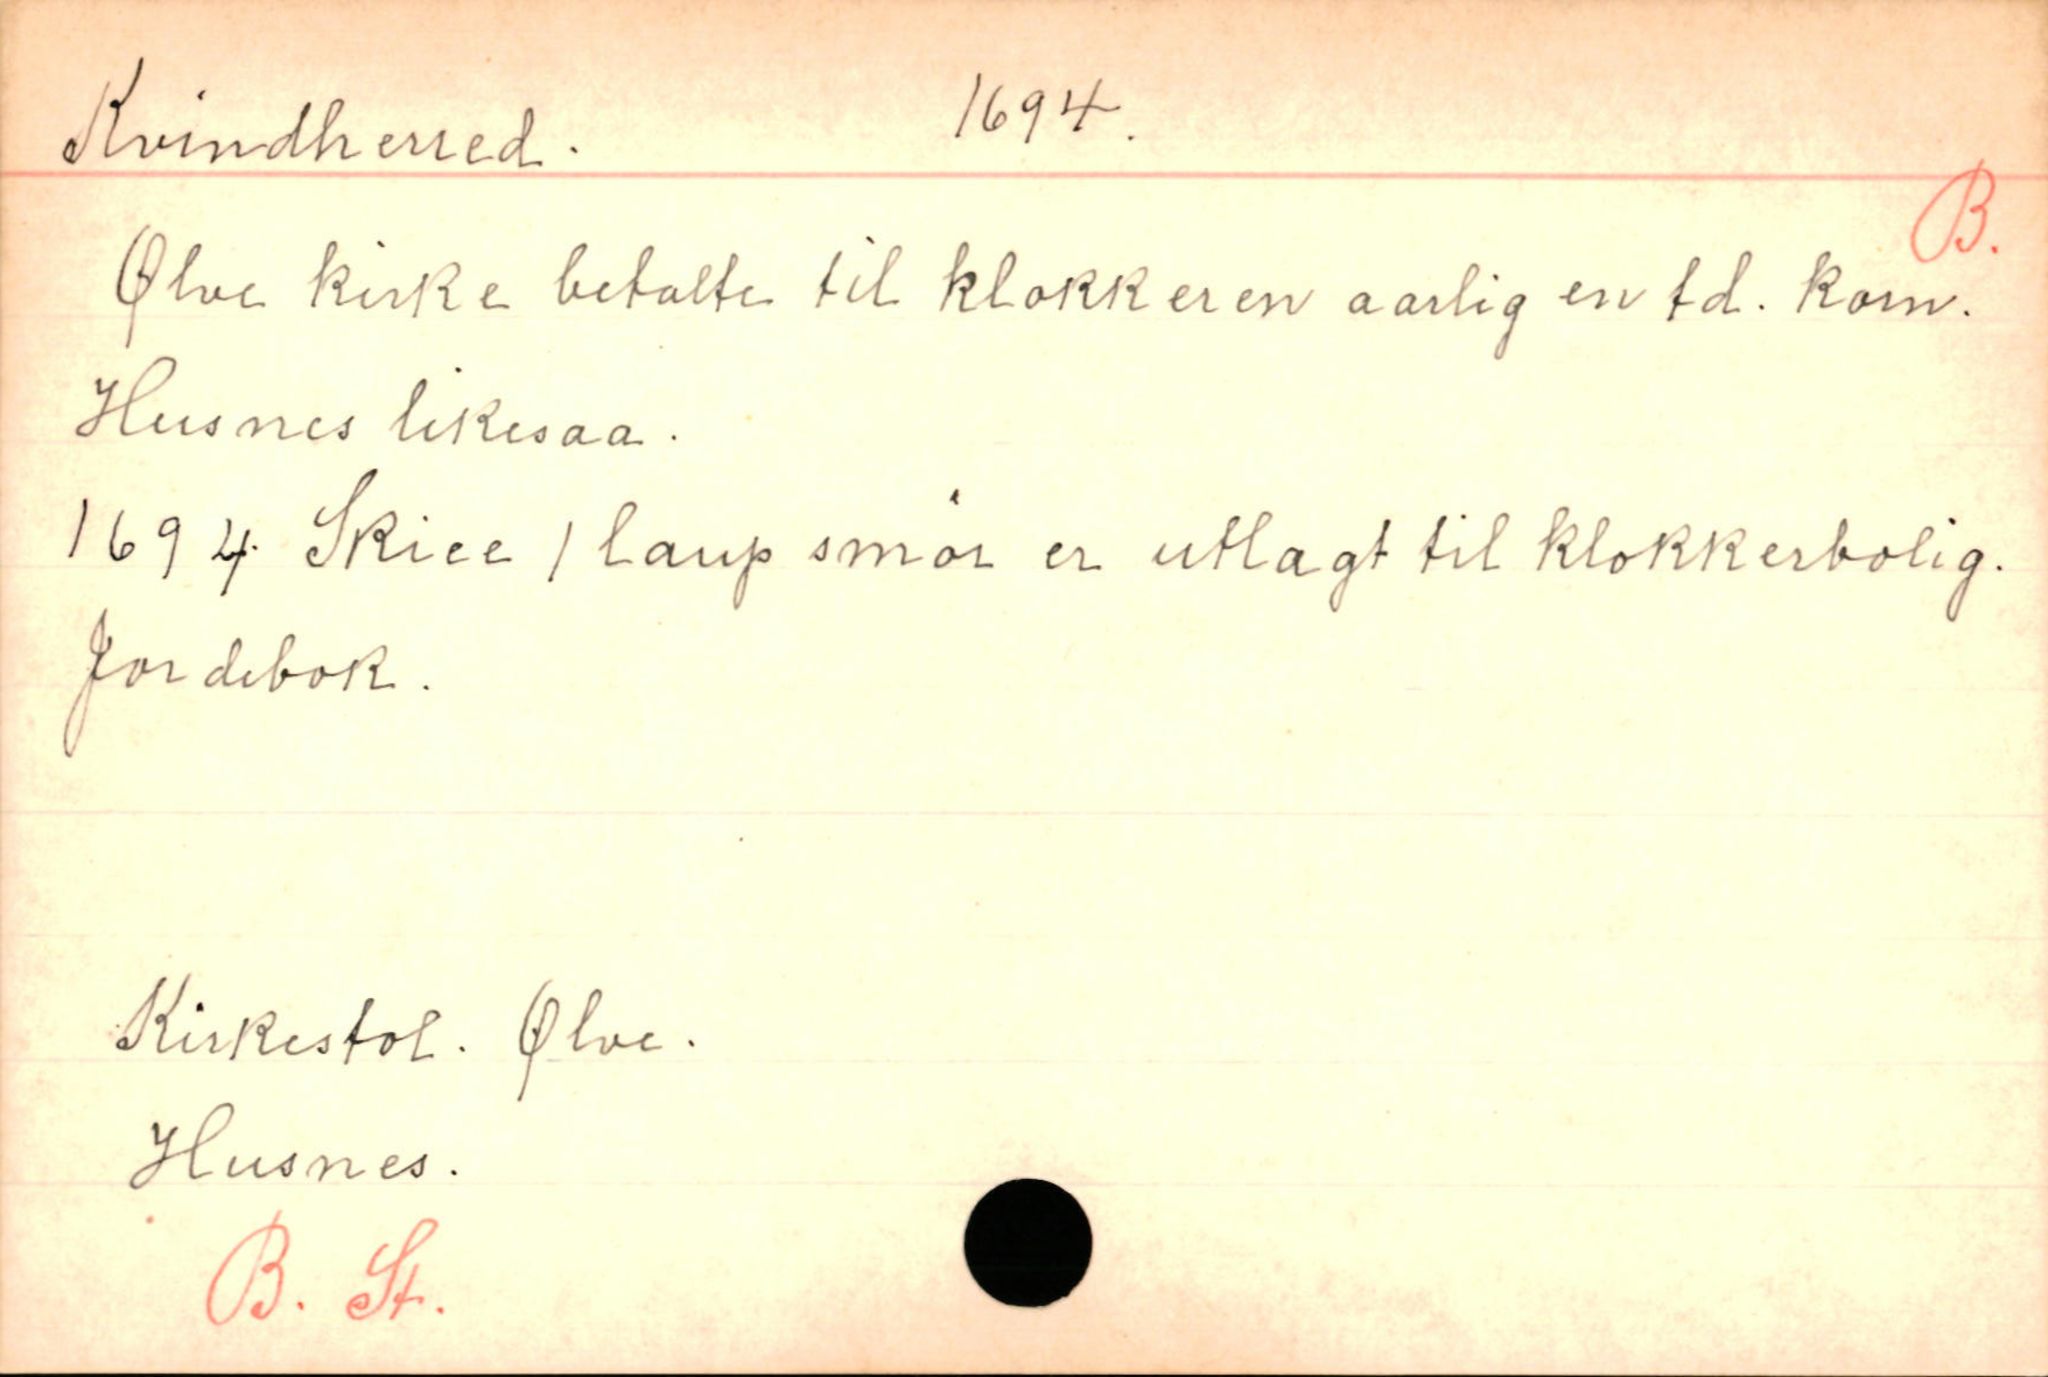 Kvindherred. 1694.
B.
Ølve kirke betalte til klokkeren aarlig en td. korn.
Husnes likesaa.
1694. Skiee 1 laup smör er utlagt til klokkerbolig.
Jordebok.
Kirkestol. Ølve.
Husnes.
B. St.